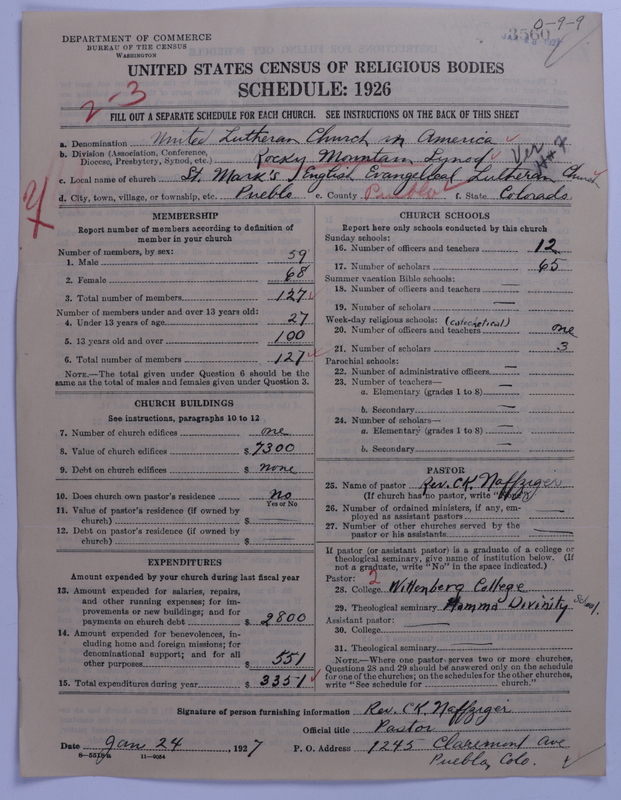 DEPARTMENT OF COMMERCE
BUREAU OF THE CENSUS
WASHINGTON
0-9-9
3560
UNITED STATES CENSUS OF RELIGIOUS BODIES
SCHEDULE: 1926
2-3
FILL OUT A SEPARATE SCHEDULE FOR EACH CHURCH. SEE INSTRUCTIONS ON THE BACK OF THIS SHEET
a. Denomination United Lutheran Church in America
b. Division (Association, Conference,
Diocese, Presbytery, Synod, etc.) Rocky Mountain Synod
Ver
c. Local name of church St. Mark's English Evangelical Lutheran Church
d. City, town, village, or township, etc. Pueblo e. County Pueblo f. State Colorado
MEMBERSHIP
Report number of members according to definition of
member in your church
Number of members, by sex:
1. Male 59
2. Female 68
3. Total number of members 127
Number of members under and over 13 years old:
4. Under 13 years of age 27
5. 13 years old and over 100
6. Total number of members 127
NOTE.—The total given under Question 6 should be the
same as the total of males and females given under Question 3.
CHURCH BUILDINGS
See instructions, paragraphs 10 to 12
7. Number of church edifices one
8. Value of church edifices $ 7300
9. Debt on church edifices $ none
10. Does church own pastor's residence No
Yes or No
11. Value of pastor's residence (if owned by
church) $
12. Debt on pastor's residence (if owned by
church) $
EXPENDITURES
Amount expended by your church during last fiscal year
13. Amount expended for salaries, repairs,
and other running expenses; for im-
provements or new buildings; and for
payments on church debt $ 2800
14. Amount expended for benevolences, in-
cluding home and foreign missions; for
denominational support; and for all
other purposes $ 551
15. Total expenditures during year $ 3351
CHURCH SCHOOLS
Report here only schools conducted by this church
Sunday schools:
16. Number of officers and teachers 12
17. Number of scholars 65
Summer vacation Bible schools:
18. Number of officers and teachers —
19. Number of scholars —
Week-day religious schools: (catechetical)
20. Number of officers and teachers one
21. Number of scholars 3
Parochial schools:
22. Number of administrative officers —
23. Number of teachers—
a. Elementary (grades 1 to 8) —
b. Secondary —
24. Number of scholars—
a. Elementary (grades 1 to 8) —
b. Secondary —
PASTOR
25. Name of pastor Rev. C.K. Naffziger
(If church has no pastor, write "None")
26. Number of ordained ministers, if any, em-
ployed as assistant pastors —
27. Number of other churches served by the
pastor or his assistants —
If pastor (or assistant pastor) is a graduate of a college or
theological seminary, give name of institution below. (If
not a graduate, write "No" in the space indicated.)
Pastor: 2
28. College Wittenberg College
29. Theological seminary Hamma Divinity School.
Assistant pastor:
30. College —
31. Theological seminary —
NOTE.—Where one pastor serves two or more churches,
Questions 28 and 29 should be answered only on the schedule
for one of the churches; on the schedules for the other churches,
write "See schedule for church."
Signature of person furnishing information Rev. CK Naffziger
Official title Pastor
Date Jan 24, 1927 P. O. Address 1245 Claremont Ave
Pueblo, Colo.
8-5518 b 11-9064